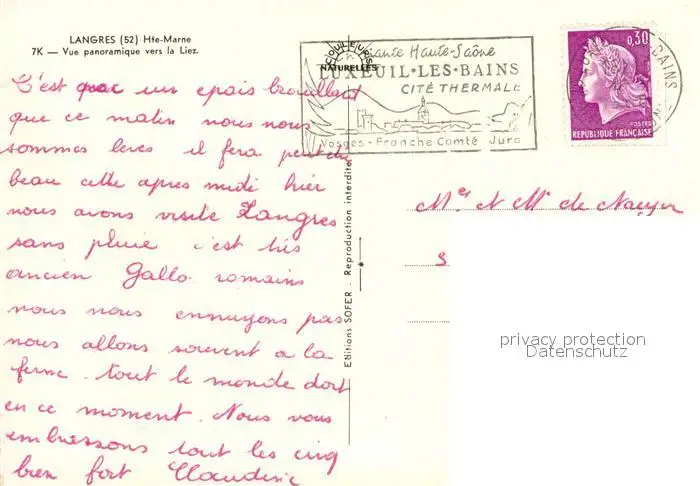 LANGRES (52) Hte-Marne
7K — Vue panoramique vers la Liez.
COULEURS
NATURELLES
Haute-Saône
LUXEUIL-LES-BAINS
CITÉ THERMALE
Vosges-Franche Comté Jura
0,30
POSTES
REPUBLIQUE FRANÇAISE
BAINS
C'est avec un epais brouillard
que ce matin nous nous
sommes levés il fera peut être
beau cette apres midi hier
nous avons visité Langres
sans pluie c'est très
ancien Gallo romains
nous nous ennuyons pas
nous allons souvent a la
ferme tout le monde dort
en ce moment. Nous vous
embrassons tout les cinq
bien fort Claudine
Editions SOFER - Reproduction interdite
Mr et Me de
privacy protection
Datenschutz